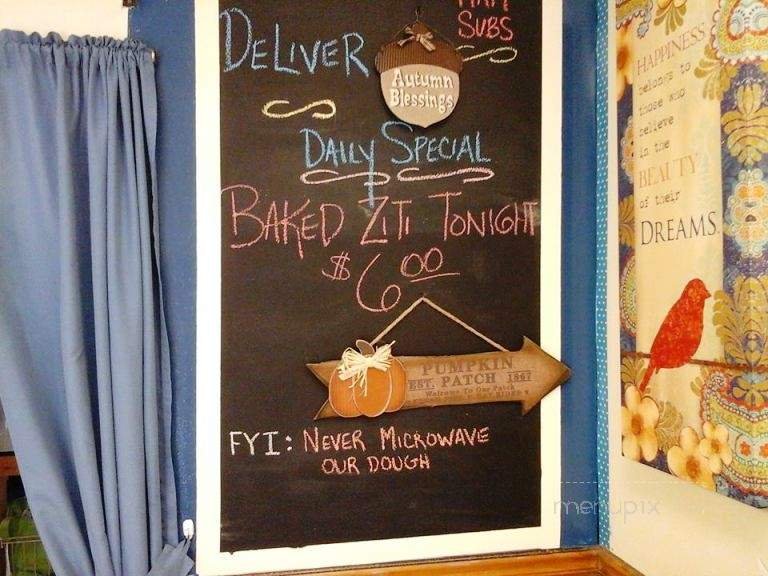 SUBS
DELIVER
Autumn
Blessings
DAILY SPECIAL
BAKED ZITI TONIGHT
$6.00
PUMPKIN
EST. PATCH 1867
Welcome To Our Patch
FYI: NEVER MICROWAVE
OUR DOUGH
HAPPINESS
belongs to
those who
believe
in the
BEAUTY
of their
DREAMS.
menupix